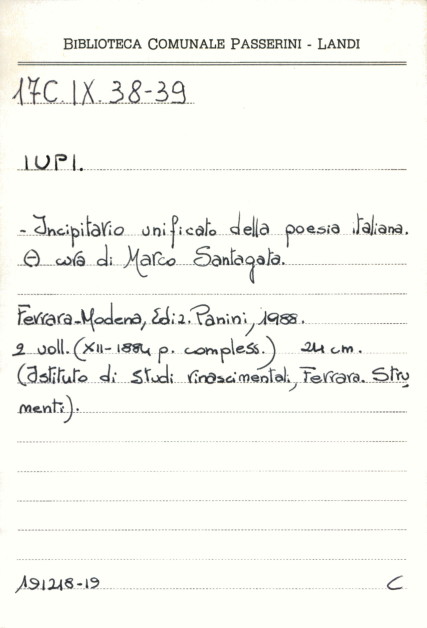 BIBLIOTECA COMUNALE PASSERINI - LANDI
17C.IX.38-39
IUPI.
- Incipitario unificato della poesia italiana.
A cura di Marco Santagata.
Ferrara-Modena, Ediz. Panini, 1988.
2 voll. (XII-1884 p. compless.) 24 cm.
(Istituto di Studi rinascimentali, Ferrara. Stru
menti).
191218-19 C